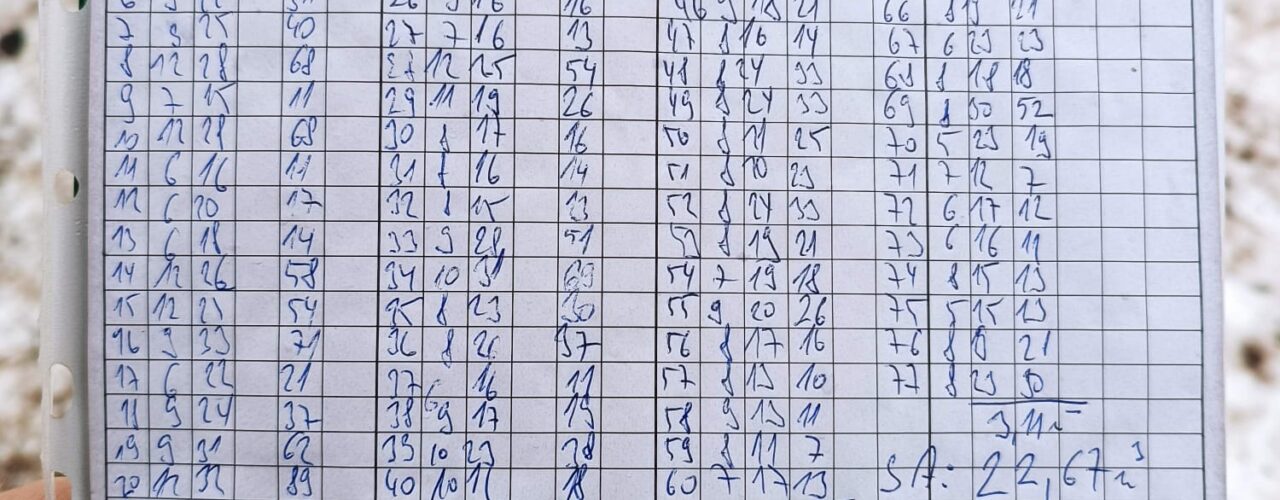 7 9 25 40 27 7 16 13 47 8 16 14 67 6 23 23
8 12 28 68 28 12 25 54 48 8 24 33 68 8 18 18
9 7 15 11 29 11 19 26 49 8 24 33 69 8 30 52
10 12 28 68 30 8 17 16 50 8 21 25 70 5 23 19
11 6 16 11 31 8 16 14 51 8 20 23 71 7 12 7
12 6 20 17 32 8 15 13 52 8 24 33 72 6 17 12
13 6 18 14 33 9 28 51 53 8 19 21 73 6 16 11
14 12 26 58 34 10 31 69 54 7 19 18 74 8 15 13
15 12 25 54 35 8 23 30 55 9 20 26 75 5 15 13
16 9 33 71 36 8 26 37 56 8 17 16 76 8 21
17 6 22 21 37 6 16 11 57 8 13 10 77 8 23 30
18 9 24 37 38 9 17 19 58 9 13 11 3,11
19 9 31 62 39 10 23 38 59 8 11 7
20 12 32 89 40 10 18 60 7 17 13 SA: 22,67 m³